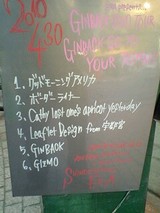 2010
4.30
GINBACK
YOUR
1. グッドモーニングアメリカ
2. ボーダーライナー
3. Cathy lost one's apricot yesterday
4. Leaflet Design from 宇都宮
5. GINBACK
6. GIZMO